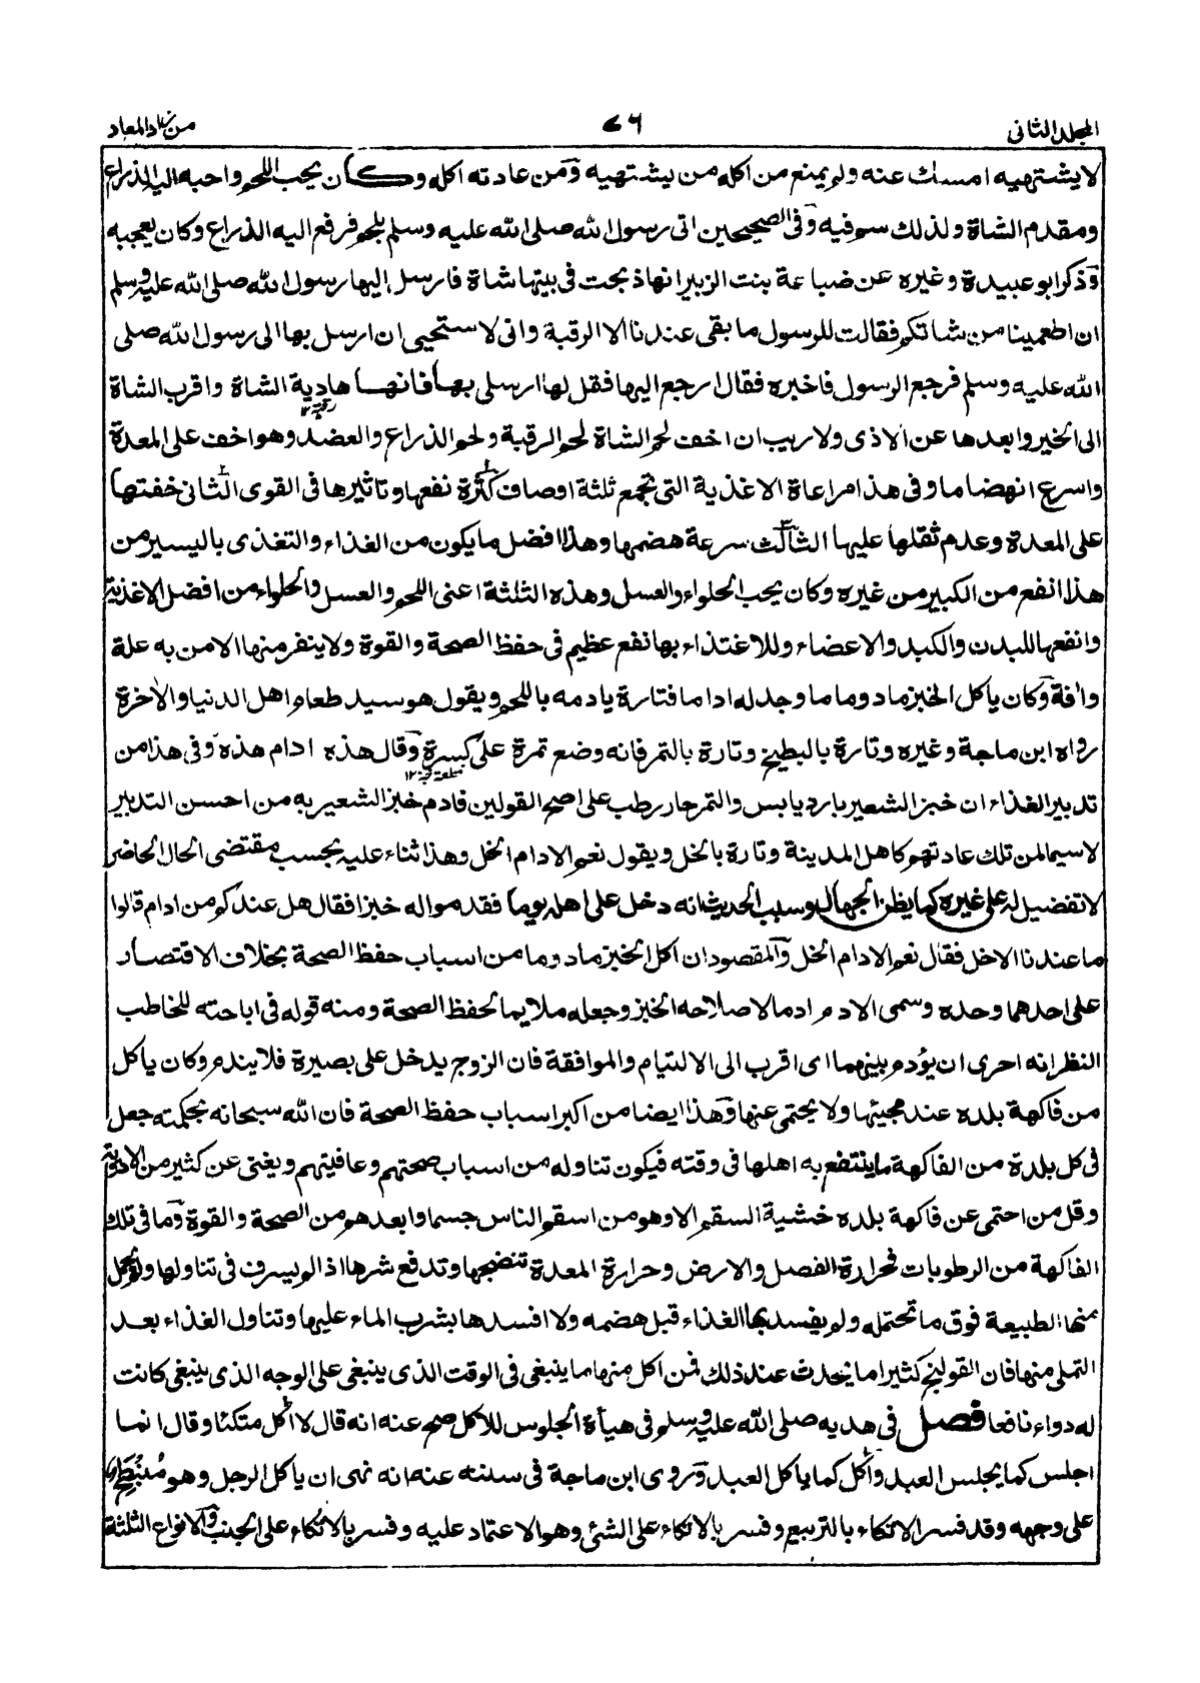 المجلد الثانى
٧٦
من زاد المعاد
لا يشتهيه امسك عنه ولم يمنع من اكله من يشتهيه ومن عادته اكله وكان يحب اللحم واحبه اليه الذراع
ومقدم الشاة ولذلك سم فيه وفى الصحيحين اتى رسول الله صلى الله عليه وسلم بلحم فرفع اليه الذراع وكان يعجبه
وذكر ابو عبيدة وغيره عن ضباعة بنت الزبير انها ذبحت فى بيتها شاة فارسل اليها رسول الله صلى الله عليه وسلم
ان اطعمينا من شاتكم فقالت للرسول ما بقى عندنا الا الرقبة وانى لاستحيى ان ارسل بها الى رسول الله صلى
الله عليه وسلم فرجع الرسول فاخبره فقال ارجع اليها فقل لها ارسلى بها فانها هادية الشاة واقرب الشاة
الى الخير وابعدها عن الاذى ولا ريب ان اخف لحم الشاة لحم الرقبة ولحم الذراع والعضد وهو اخف على المعدة
واسرع انهضاما وفى هذا مراعاة الاغذية التى تجمع ثلثة اوصاف كثرة نفعها وتاثيرها فى القوى الثانى خفتها
على المعدة وعدم ثقلها عليها الثالث سرعة هضمها وهذا افضل ما يكون من الغذاء والتغذى باليسير من
هذا انفع من الكبير من غيره وكان يحب الحلواء والعسل وهذه الثلثة اعنى اللحم والعسل والحلواء من افضل الاغذية
وانفعها للبدن والكبد والاعضاء وللاغتذاء بها نفع عظيم فى حفظ الصحة والقوة ولا ينفر منها الا من به علة
وآفة وكان ياكل الخبز مادوما ما وجد له اداما فتارة يادمه باللحم ويقول هو سيد طعام اهل الدنيا والآخرة
رواه ابن ماجة وغيره وتارة بالبطيخ وتارة بالتمر فانه وضع تمرة على كسرة وقال هذه ادام هذه وفى هذا من
تدبير الغذاء ان خبز الشعير بارد يابس والتمر حار رطب على اصح القولين فادم خبز الشعير به من احسن التدبير
لا سيما لمن تلك عادتهم كاهل المدينة وتارة بالخل ويقول نعم الادام الخل وهذا ثناء عليه بحسب مقتضى الحال الحاضر
لا تفضيل له على غيره كما يظن الجهال وسبب الحديث انه دخل على اهله يوما فقدموا له خبزا فقال هل عندكم من ادام قالوا
ما عندنا الا خل فقال نعم الادام الخل والمقصود ان اكل الخبز مادوما من اسباب حفظ الصحة بخلاف الاقتصار
على احدهما وحده وسمى الادم ادما لاصلاحه الخبز وجعله ملايما لحفظ الصحة ومنه قوله فى اباحته للخاطب
النظر انه احرى ان يؤدم بينهما اى اقرب الى الالتيام والموافقة فان الزوج يدخل على بصيرة فلا يندم وكان ياكل
من فاكهة بلده عند مجيئها ولا يحتمى عنها وهذا ايضا من اكبر اسباب حفظ الصحة فان الله سبحانه بحكمته جعل
فى كل بلدة من الفاكهة ما ينتفع به اهلها فى وقته فيكون تناوله من اسباب صحتهم وعافيتهم ويغنى عن كثير من الادوية
وقل من احتمى عن فاكهة بلده خشية السقم الا وهو من اسقم الناس جسما وابعدهم من الصحة والقوة وما فى تلك
الفاكهة من الرطوبات فحرارة الفصل والارض وحرارة المعدة تنضجها وتدفع شرها اذا لم يسرف فى تناولها ولم يحمل
منها الطبيعة فوق ما تحتمله ولم يفسد بها الغذاء قبل هضمه ولا افسدها بشرب الماء عليها وتناول الغذاء بعد
التملى منها فان القولنج كثيرا ما يحدث عند ذلك فمن اكل منها ما ينبغى فى الوقت الذى ينبغى على الوجه الذى ينبغى كانت
له دواء نافعا فصل فى هديه صلى الله عليه وسلم فى هيأة الجلوس للاكل صح عنه انه قال لا آكل متكئا وقال انما
اجلس كما يجلس العبد وآكل كما ياكل العبد وروى ابن ماجة فى سننه عنه انه نهى ان ياكل الرجل وهو منبطح
على وجهه وقد فسر الاتكاء بالتربيع وفسر بالاتكاء على الشئ وهو الاعتماد عليه وفسر بالاتكاء على الجنب والانواع الثلثة